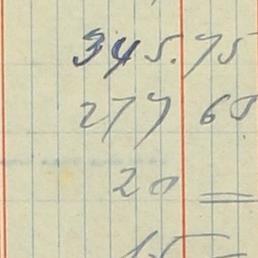 345.75
277 60
20 =
15 =